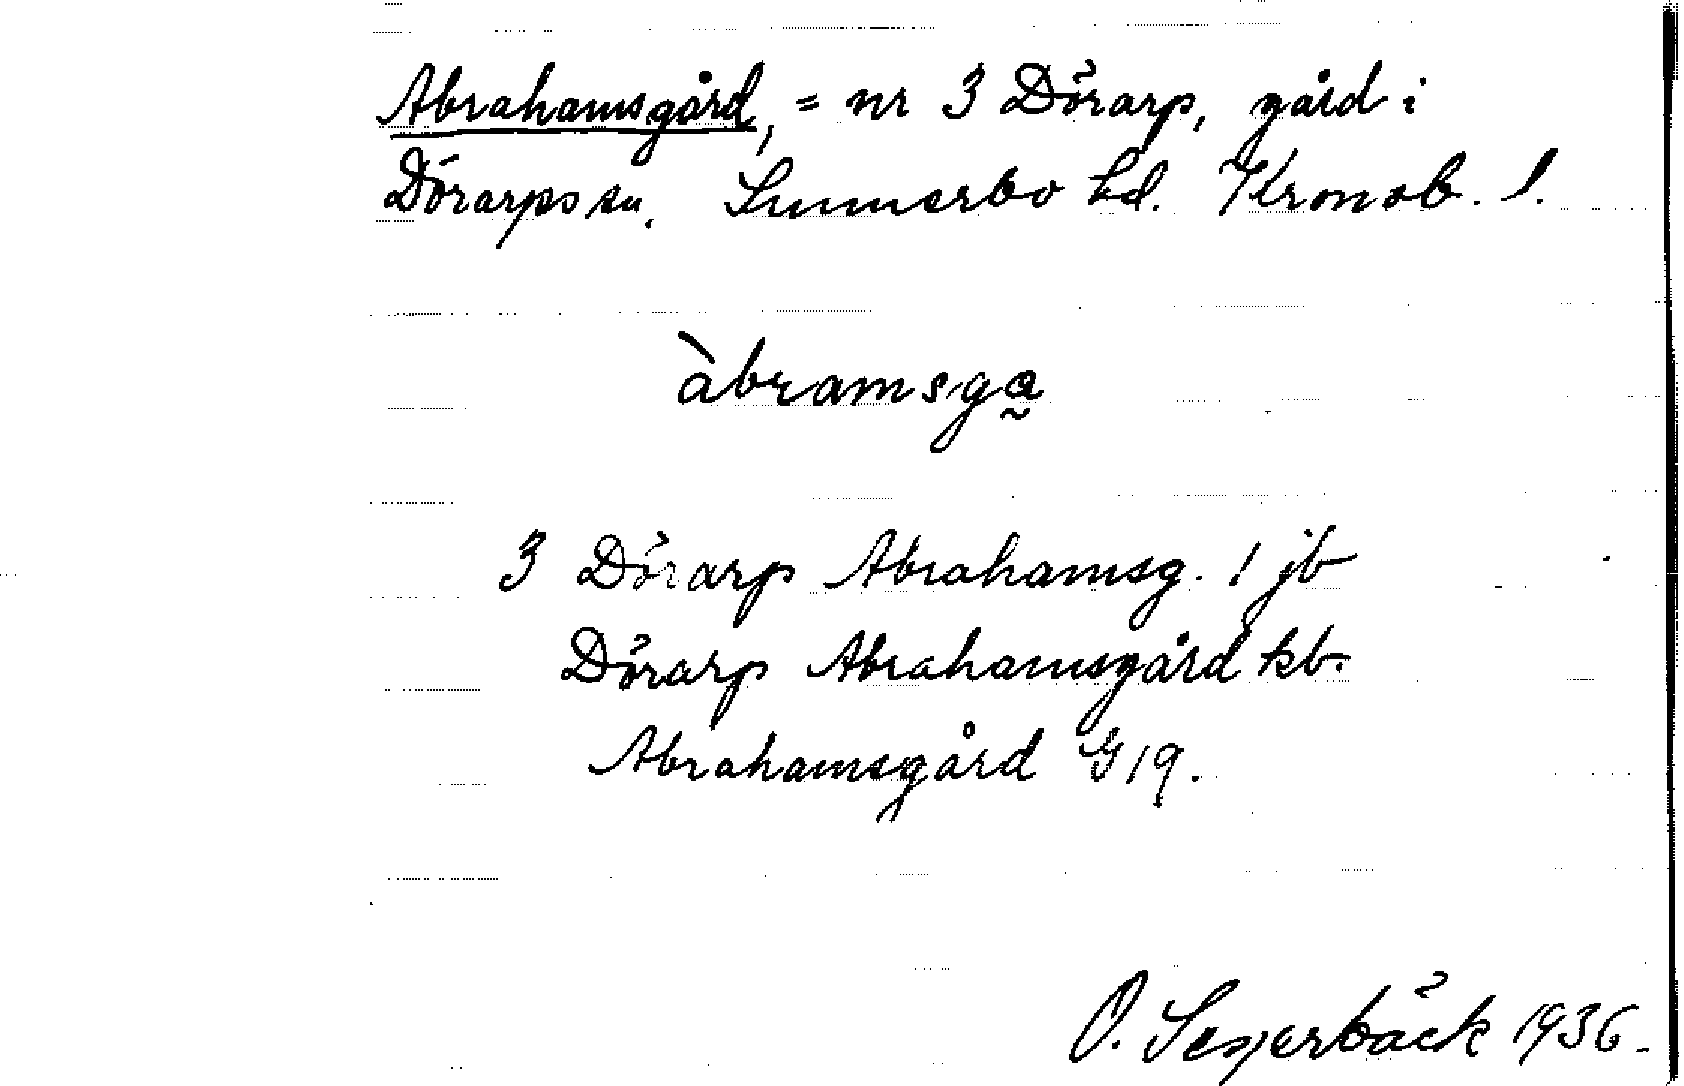 Abrahamsgård, = nr 3 Dörarp, gård i
Dörarps sn. Sunnerbo hd. Kronob. l.
àbramsga̰
3 Dörarp Abrahamsg. 1 jb
Dörarp Abrahamsgård kb.
Abrahamsgård G 19.
O. Seyerbäck 1936.